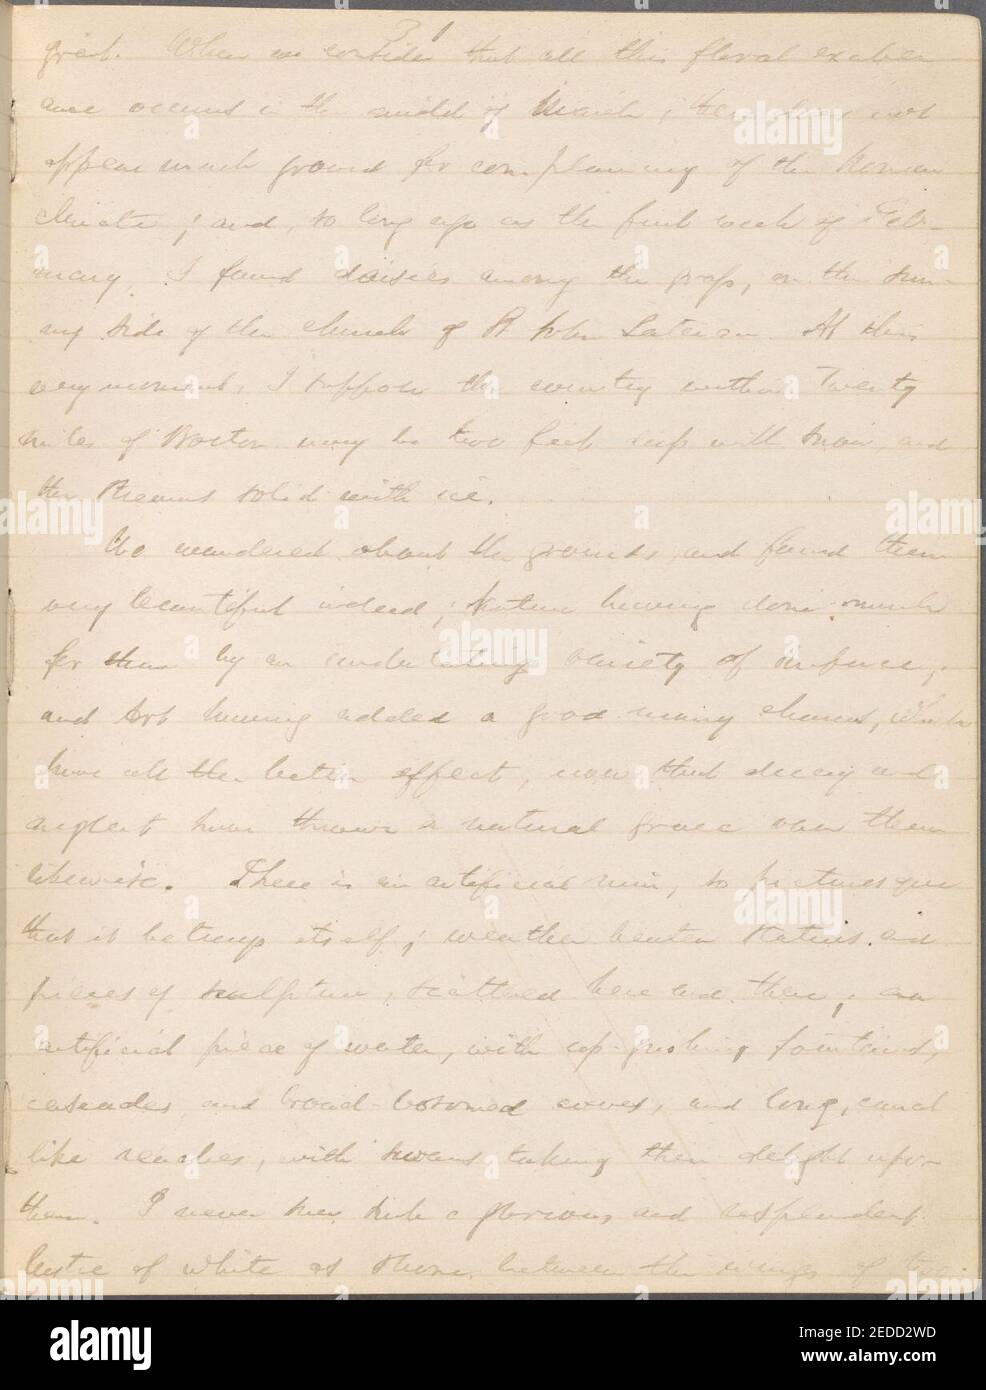 31
great. When we consider that all this floral exuber-
ance occurs in the midst of March, there does not
appear much ground for complaining of the Roman
climate; and, so long ago as the first week of Feb-
ruary, I found daisies among the grass, on the sun-
ny side of the church of St John Lateran. At this
very moment, I suppose the country within twenty
miles of Boston may be two feet deep with snow, and
the streams solid with ice.
We wandered about the grounds, and found them
very beautiful indeed; Nature having done much
for them by an undulating variety of surface,
and Art having added a good many charms, which
have all the better effect, now that decay and
neglect have thrown a natural grace over them
likewise. There is an artificial ruin, so picturesque
that it betrays itself; weather beaten statues and
pieces of sculpture, scattered here and there; an
artificial piece of water, with up-gushing fountains,
cascades, and broad-bosomed coves, and long, canal
like reaches, with swans taking their delight upon
them. I never saw such a glorious and resplendent
lustre of white as shone between the wings of two
alamy
Image ID: 2EDD2WD
www.alamy.com